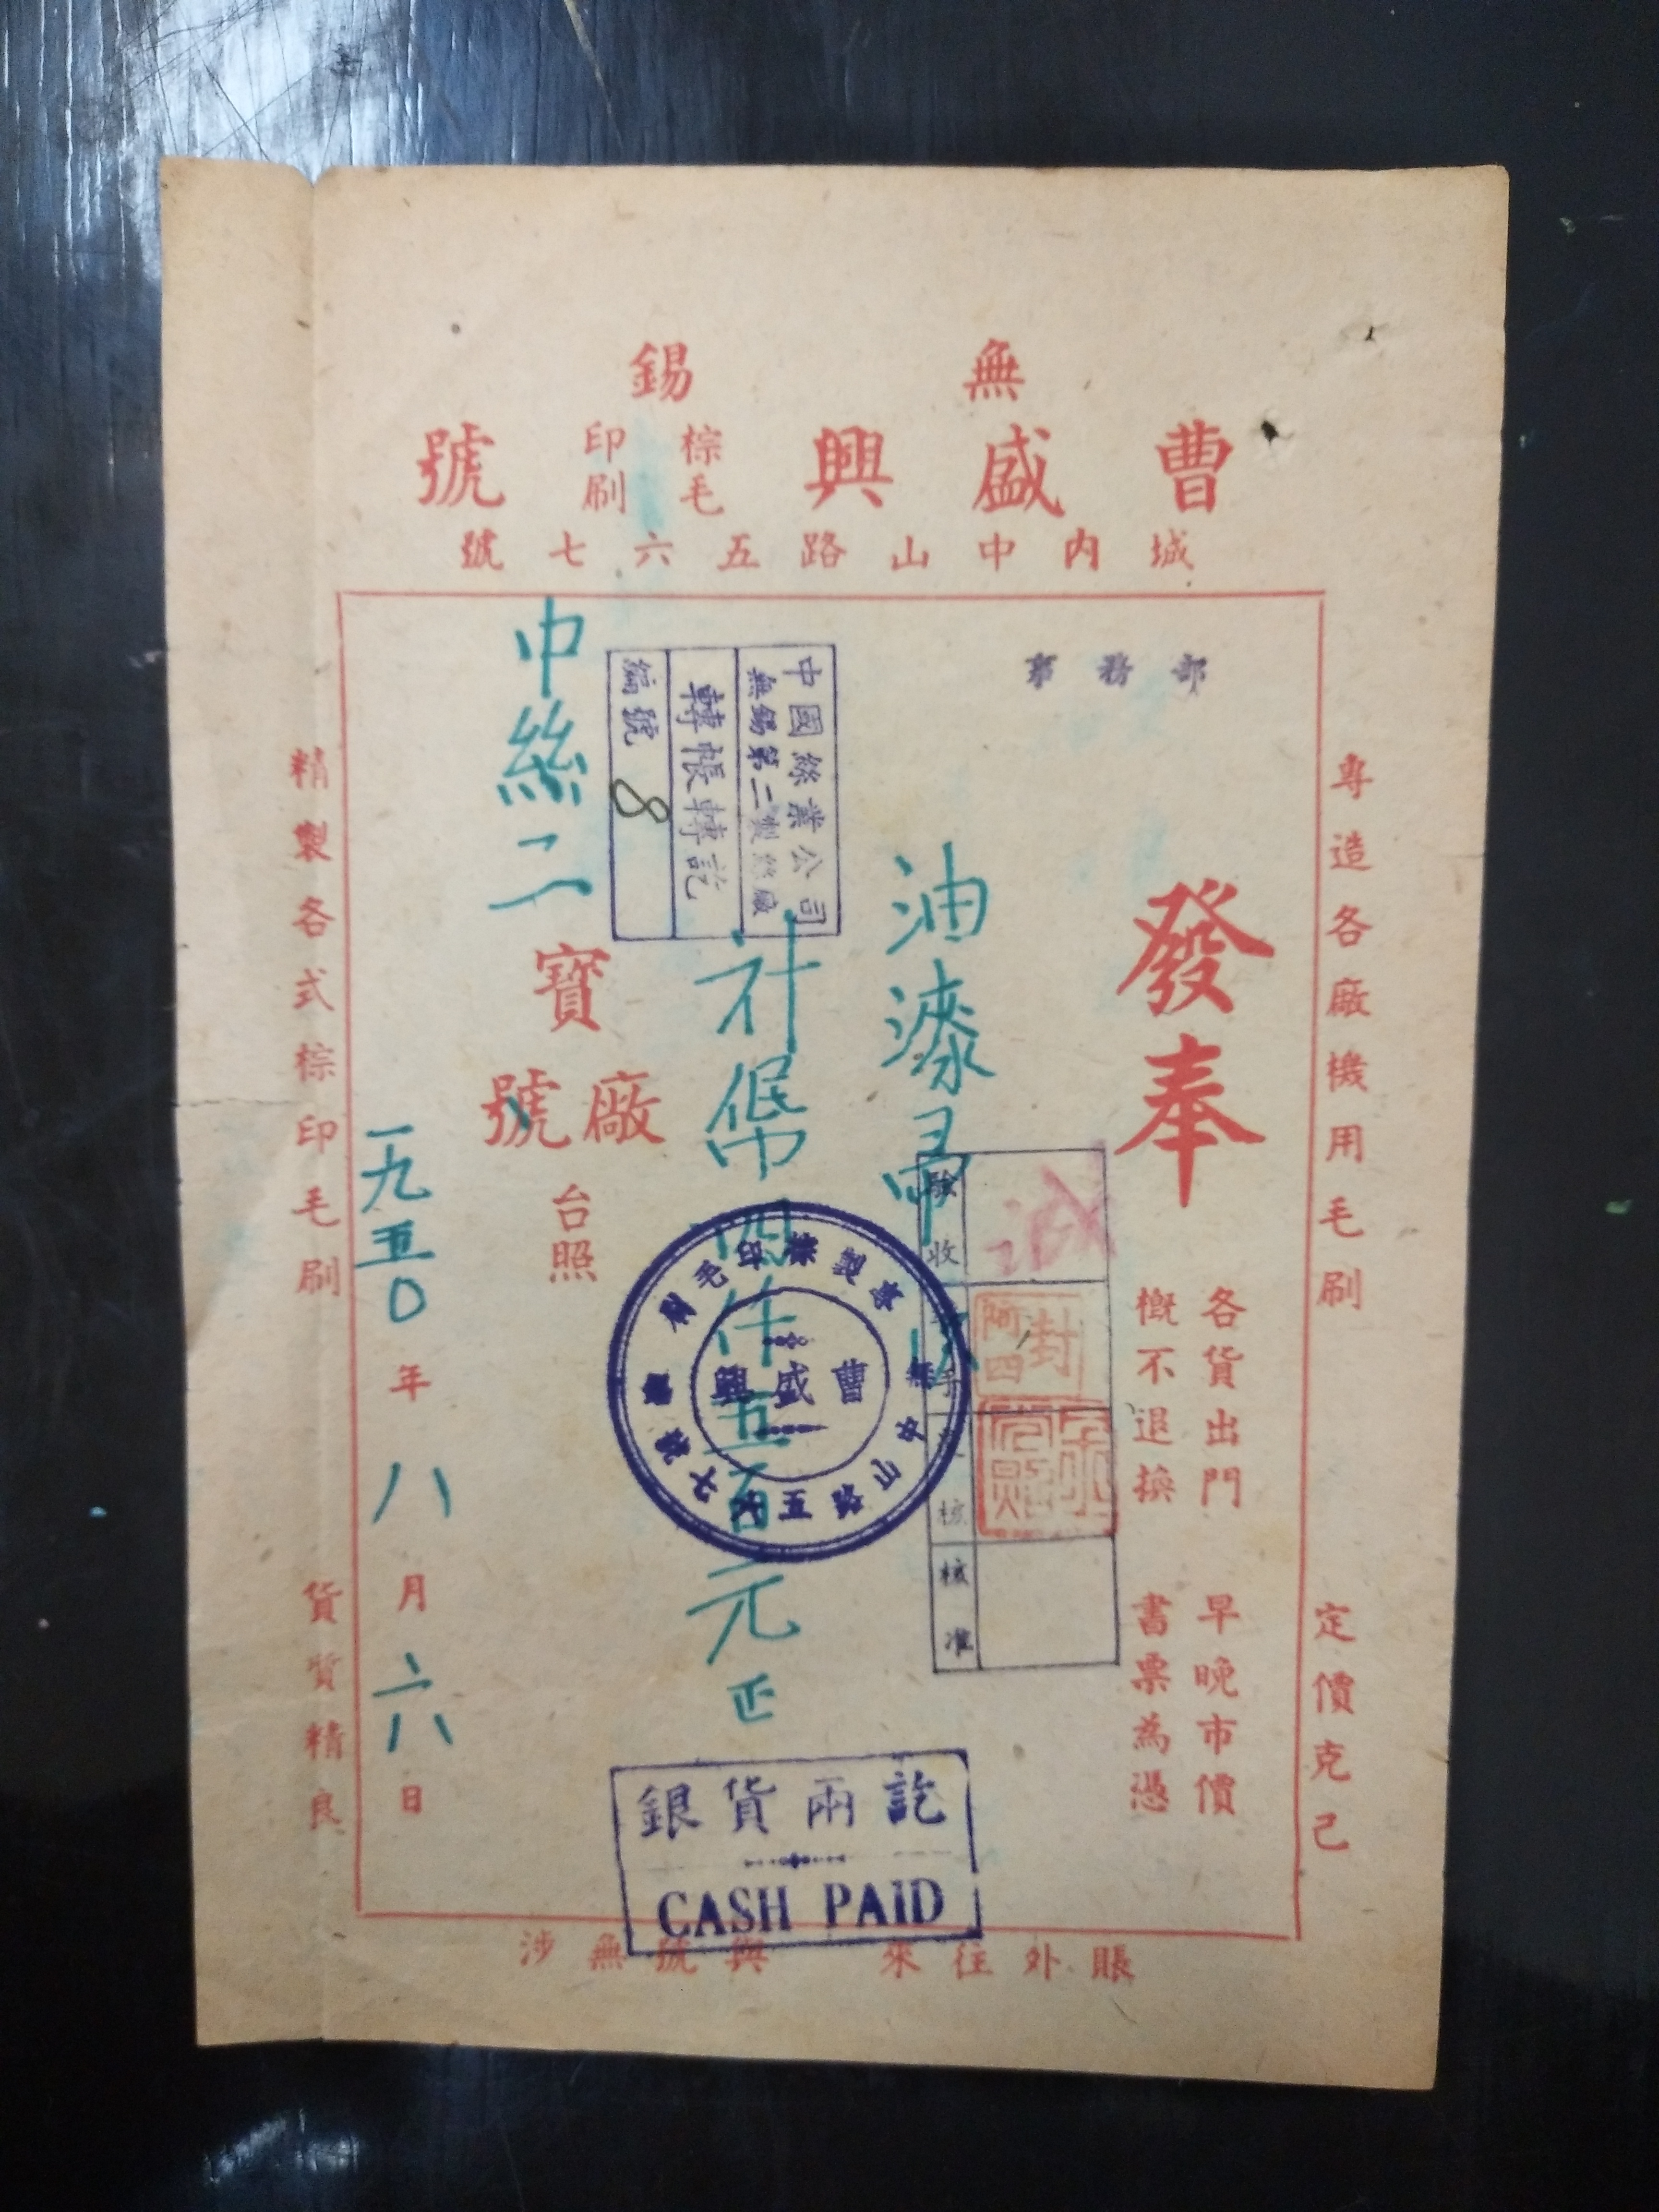 無錫
曹盛興棕毛印刷號
城內中山路五六七號
專造各廠機用毛刷
定價克己
事務部
奉發
各貨出門
概不退換
早晚市價
書票為憑
油漆帚
驗收
核
核准
封阿四
計幣四仟五百元正
中國絲業公司
無錫第二製絲廠
轉帳轉訖
編號 8
曹盛興
銀貨兩訖
CASH PAID
中絲二
寶廠號台照
一九五〇年八月六日
精製各式棕印毛刷
貨質精良
賬外往來
與號無涉